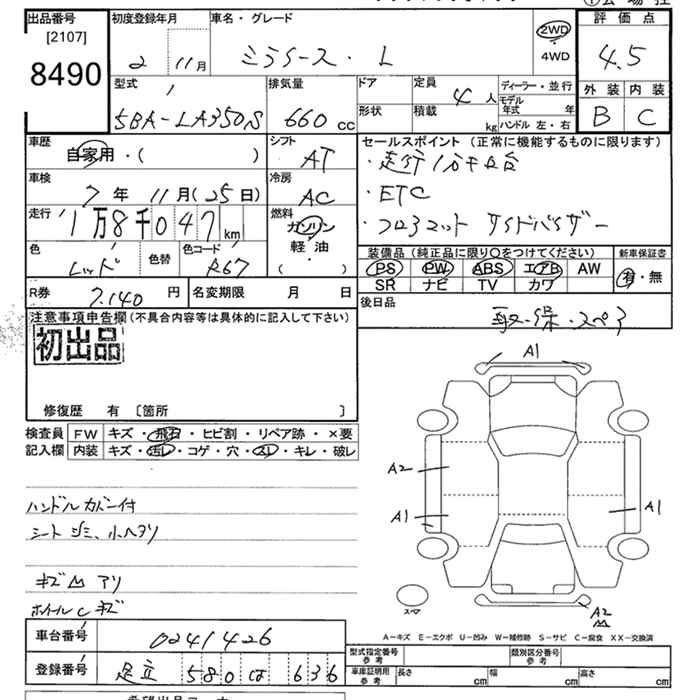 出品番号 初度登録年月 車名・グレード 評価点
[2107] 2WD
8490 2 11月 ミライース・L 4WD 4.5
型式 排気量 ドア 定員 4人 ディーラー・並行 外装 内装
5BA-LA350S 660cc 形状 積載 kg モデル年式 年 B C
ハンドル 左・右
車歴 シフト セールスポイント(正常に機能するものに限ります)
自家用・( ) AT ・走行1万キロ台
車検 冷房 ・ETC
7年 11月(25日) AC ・フロアマット サイドバイザー
走行 燃料
1万8千047km ガソリン 装備品(純正品に限り〇をつけてください) 新車保証書
色 色替 色コード 軽・油 PS PW ABS エアB AW 有・無
レッド R67 ( ) SR ナビ TV カワ
R券 7.140円 名変期限 月 日 後日品
取・保・スペア
注意事項申告欄(不具合内容等は具体的に記入して下さい)
初出品
A1
修復歴 有 [箇所 ]
検査員 FW キズ・飛石・ヒビ割・リペア跡・×要
記入欄 内装 キズ・汚レ・コゲ・穴・スレ・キレ・破レ
A2
ハンドルカバー付
A1 A1
シートシミ、小ヘタリ
キズ凹アリ
ホイールCキズ
スペア
A2
車台番号 0241426
A-キズ E-エクボ U-凹み W-補修跡 S-サビ C-腐食 XX-交換済
登録番号 足立 580 は 636
型式指定番号 参考 類別区分番号 参考
車庫証明用 参考 長さ cm 幅 cm 高さ cm